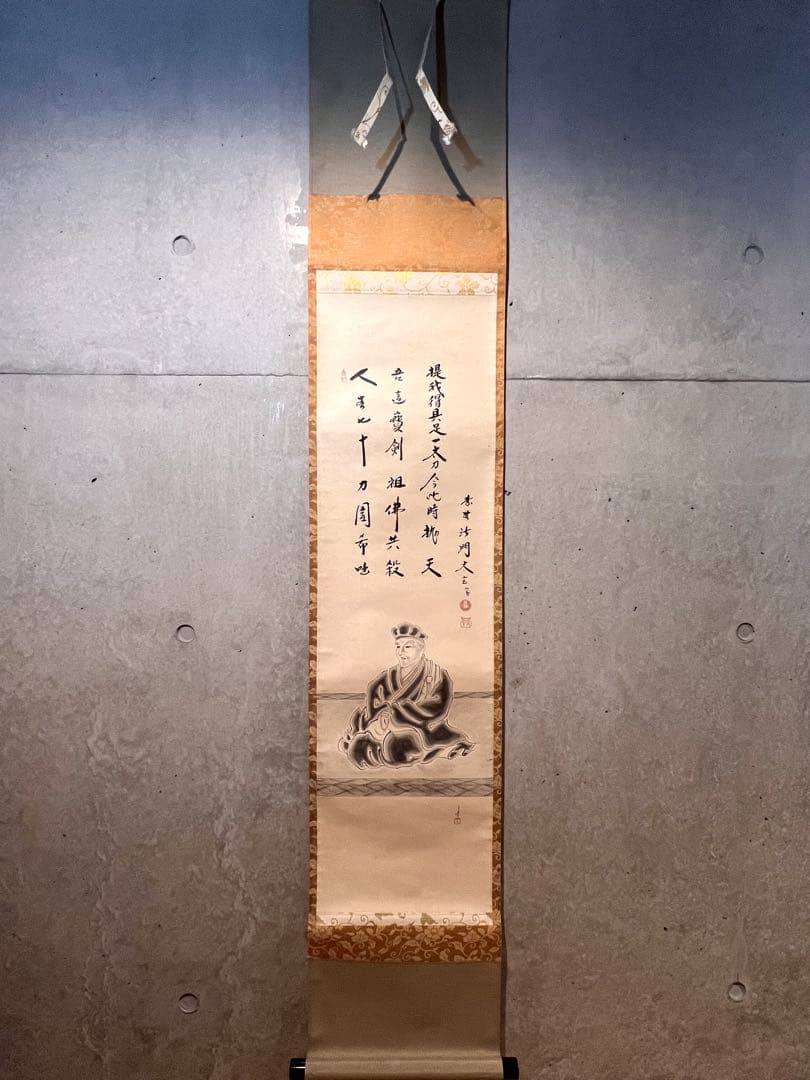 人生七十力圍希咄
吾這寶劍祖佛共殺
提我得具足一太刀今此時抛天
沙門